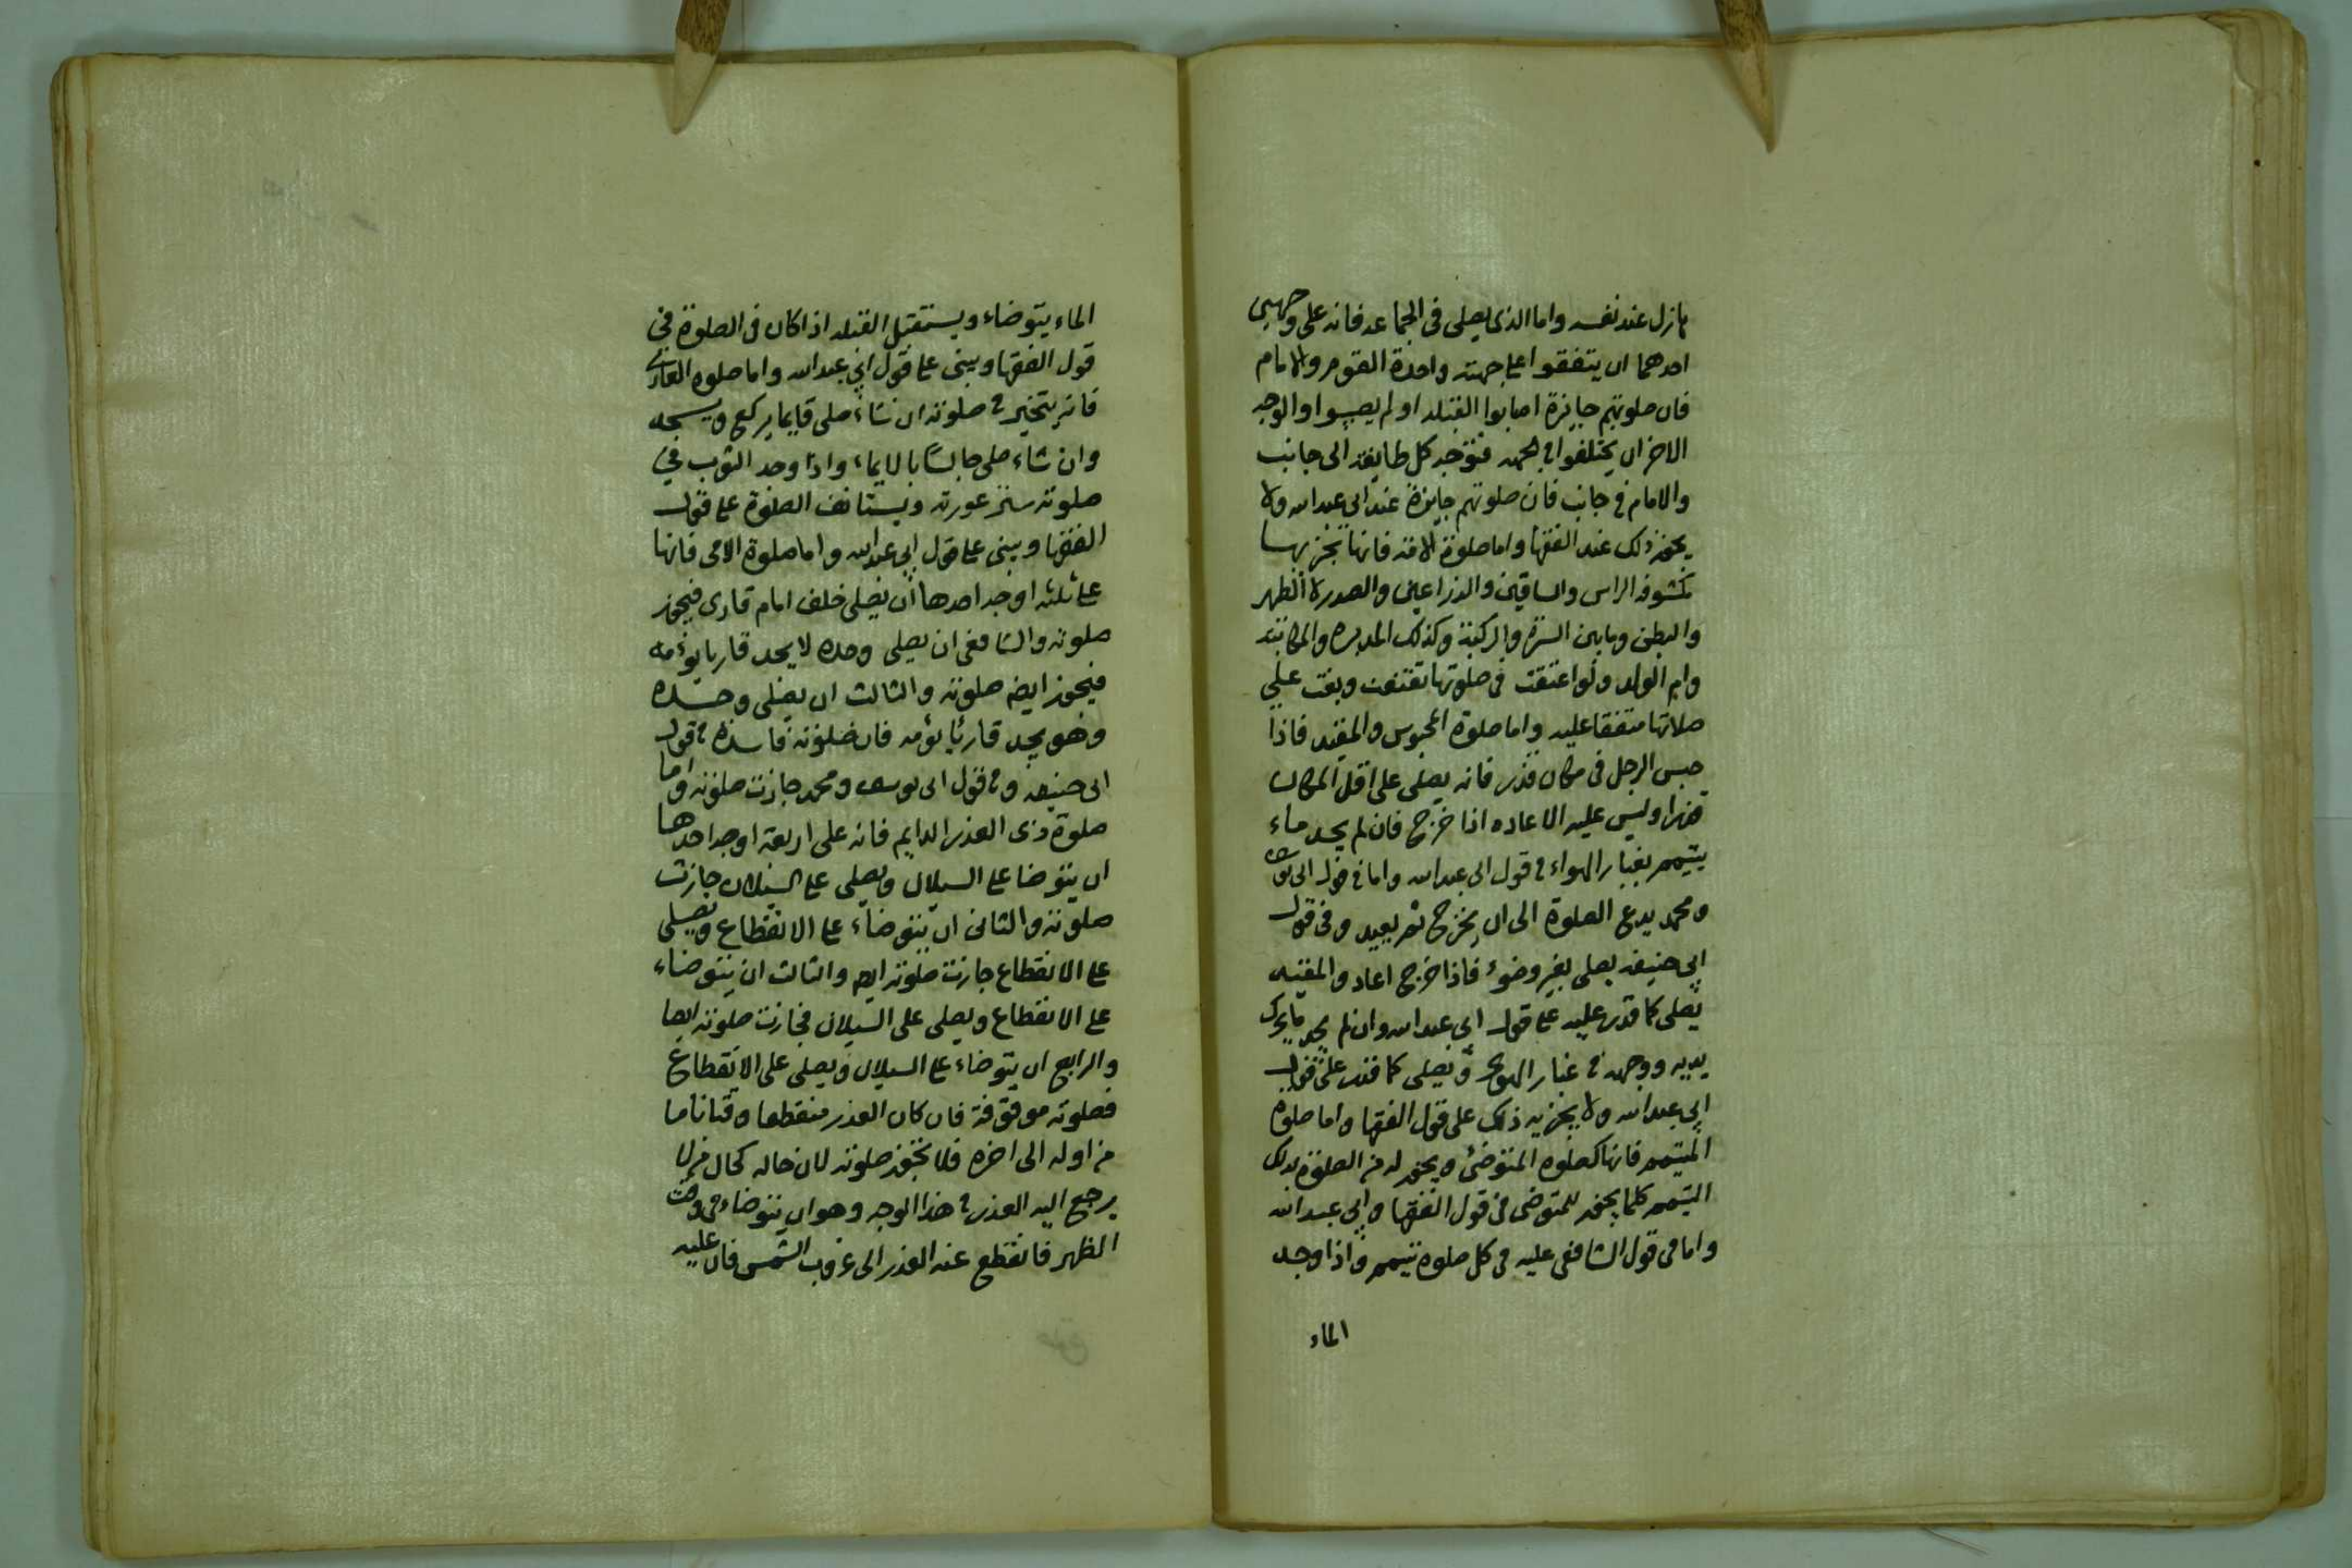 نازل عند نفسه واما الذى يصلى فى الجماعه فانه على وجهين
احدهما ان يتفقوا على جهته واحدة القوم والامام
فان صلوتهم جايزة اصابوا القبله او لم يصيبوا والوجه
الاخر ان يختلفوا فى الجهه فتوجه كل طايفة الى جانب
والامام فى جانب فان صلوتهم جايزة عند ابى عبد الله ولا
يجوز ذلك عند الفقها واما صلوة الامة فانها تجزيها
مكشوفه الراس والساقين والذراعين والصدر لا الظهر
والبطن وما بين السترة والركبة وكذلك المدبره والمكاتبه
وام الولد ولو اعتقت فى صلوتها تقنعت وبنت على
صلاتها متفقا عليه واما صلوة المحبوس والمقيد فاذا
حبس الرجل فى مكان قذر فانه يصلى على اقل المكان
قذرا وليس عليه الاعاده اذا خرج فان لم يجد ماء
يتيمم بغبار الهواء فى قول ابى عبد الله واما فى قول ابى يوسف
ومحمد يدع الصلوة الى ان يخرج ثم يعيد وفى قول
ابى حنيفه يصلى بغير وضوء فاذا خرج اعاد والمقيد
يصلى كما قدر عليه على قول ابى عبد الله وان لم يجد ما يحرك
يديه ووجهه فى غبار الهوى ويصلى كما قدر على قول
ابى عبد الله ولا يجزيه ذلك على قول الفقها واما صلوه
المتيمم فانها كصلوه المتوضئ ويجوز له من الصلوة بذلك
التيمم كلما يجوز للمتوضى فى قول الفقها وابى عبد الله
واما فى قول الشافعى عليه فى كل صلوه تيمم واذا وجد
الماء
الماء يتوضاء ويستقبل القبله اذا كان فى الصلوة فى
قول الفقها ويبنى على قول ابى عبد الله واما صلوه العارى
فانه يتخير فى صلوته ان شاء صلى قايما يركع ويسجد
وان شاء صلى جالسا بالايماء واذا وجد الثوب فى
صلوته ستر عورته ويستانف الصلوة على قول
الفقها ويبنى على قول ابى عبد الله واما صلوة الامى فانها
على ثلثه اوجه احدها ان يصلى خلف امام قارى فيجوز
صلوته والشافعى ان يصلى وحده لا يجد قاريا يؤمه
فيجوز ايضه صلوته والثالث ان يصلى وحده
وهو يجد قارئا يؤمه فان صلوته فاسدة فى قول
ابى حنيفه وفى قول ابى يوسف ومحمد جازت صلوته واما
صلوة ذى العذر الدايم فانه على اربعة اوجه احدها
ان يتوضا على السيلان ويصلى على السيلان جازت
صلوته والثانى ان يتوضاء على الانقطاع ويصلى
على الانقطاع جازت صلوته ايضه والثالث ان يتوضاء
على الانقطاع ويصلى على السيلان فجازت صلوته ايضا
والرابع ان يتوضاء على السيلان ويصلى على الانقطاع
فصلوته موقوفة فان كان العذر منقطعا وقتا تاما
من اوله الى اخره فلا تجوز صلوته لان حاله كحال من لا
يرجع اليه العذر فى هذا الوجه وهو ان يتوضاء فى وقت
الظهر فانقطع عنه العذر الى غروب الشمس فان عليه